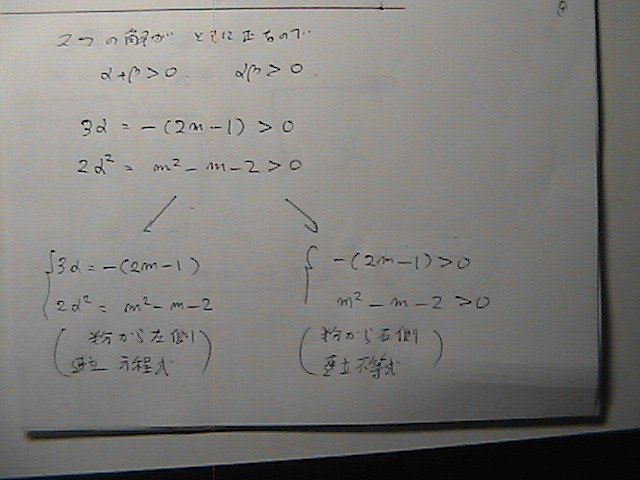 2つの解がともに正なので
α+β>0. αβ>0.
3α = -(2m-1) > 0
2α² = m² - m - 2 > 0
3α = -(2m-1)
2α² = m² - m - 2
から左側
連立方程式
-(2m-1) > 0
m² - m - 2 > 0
から右側
連立不等式